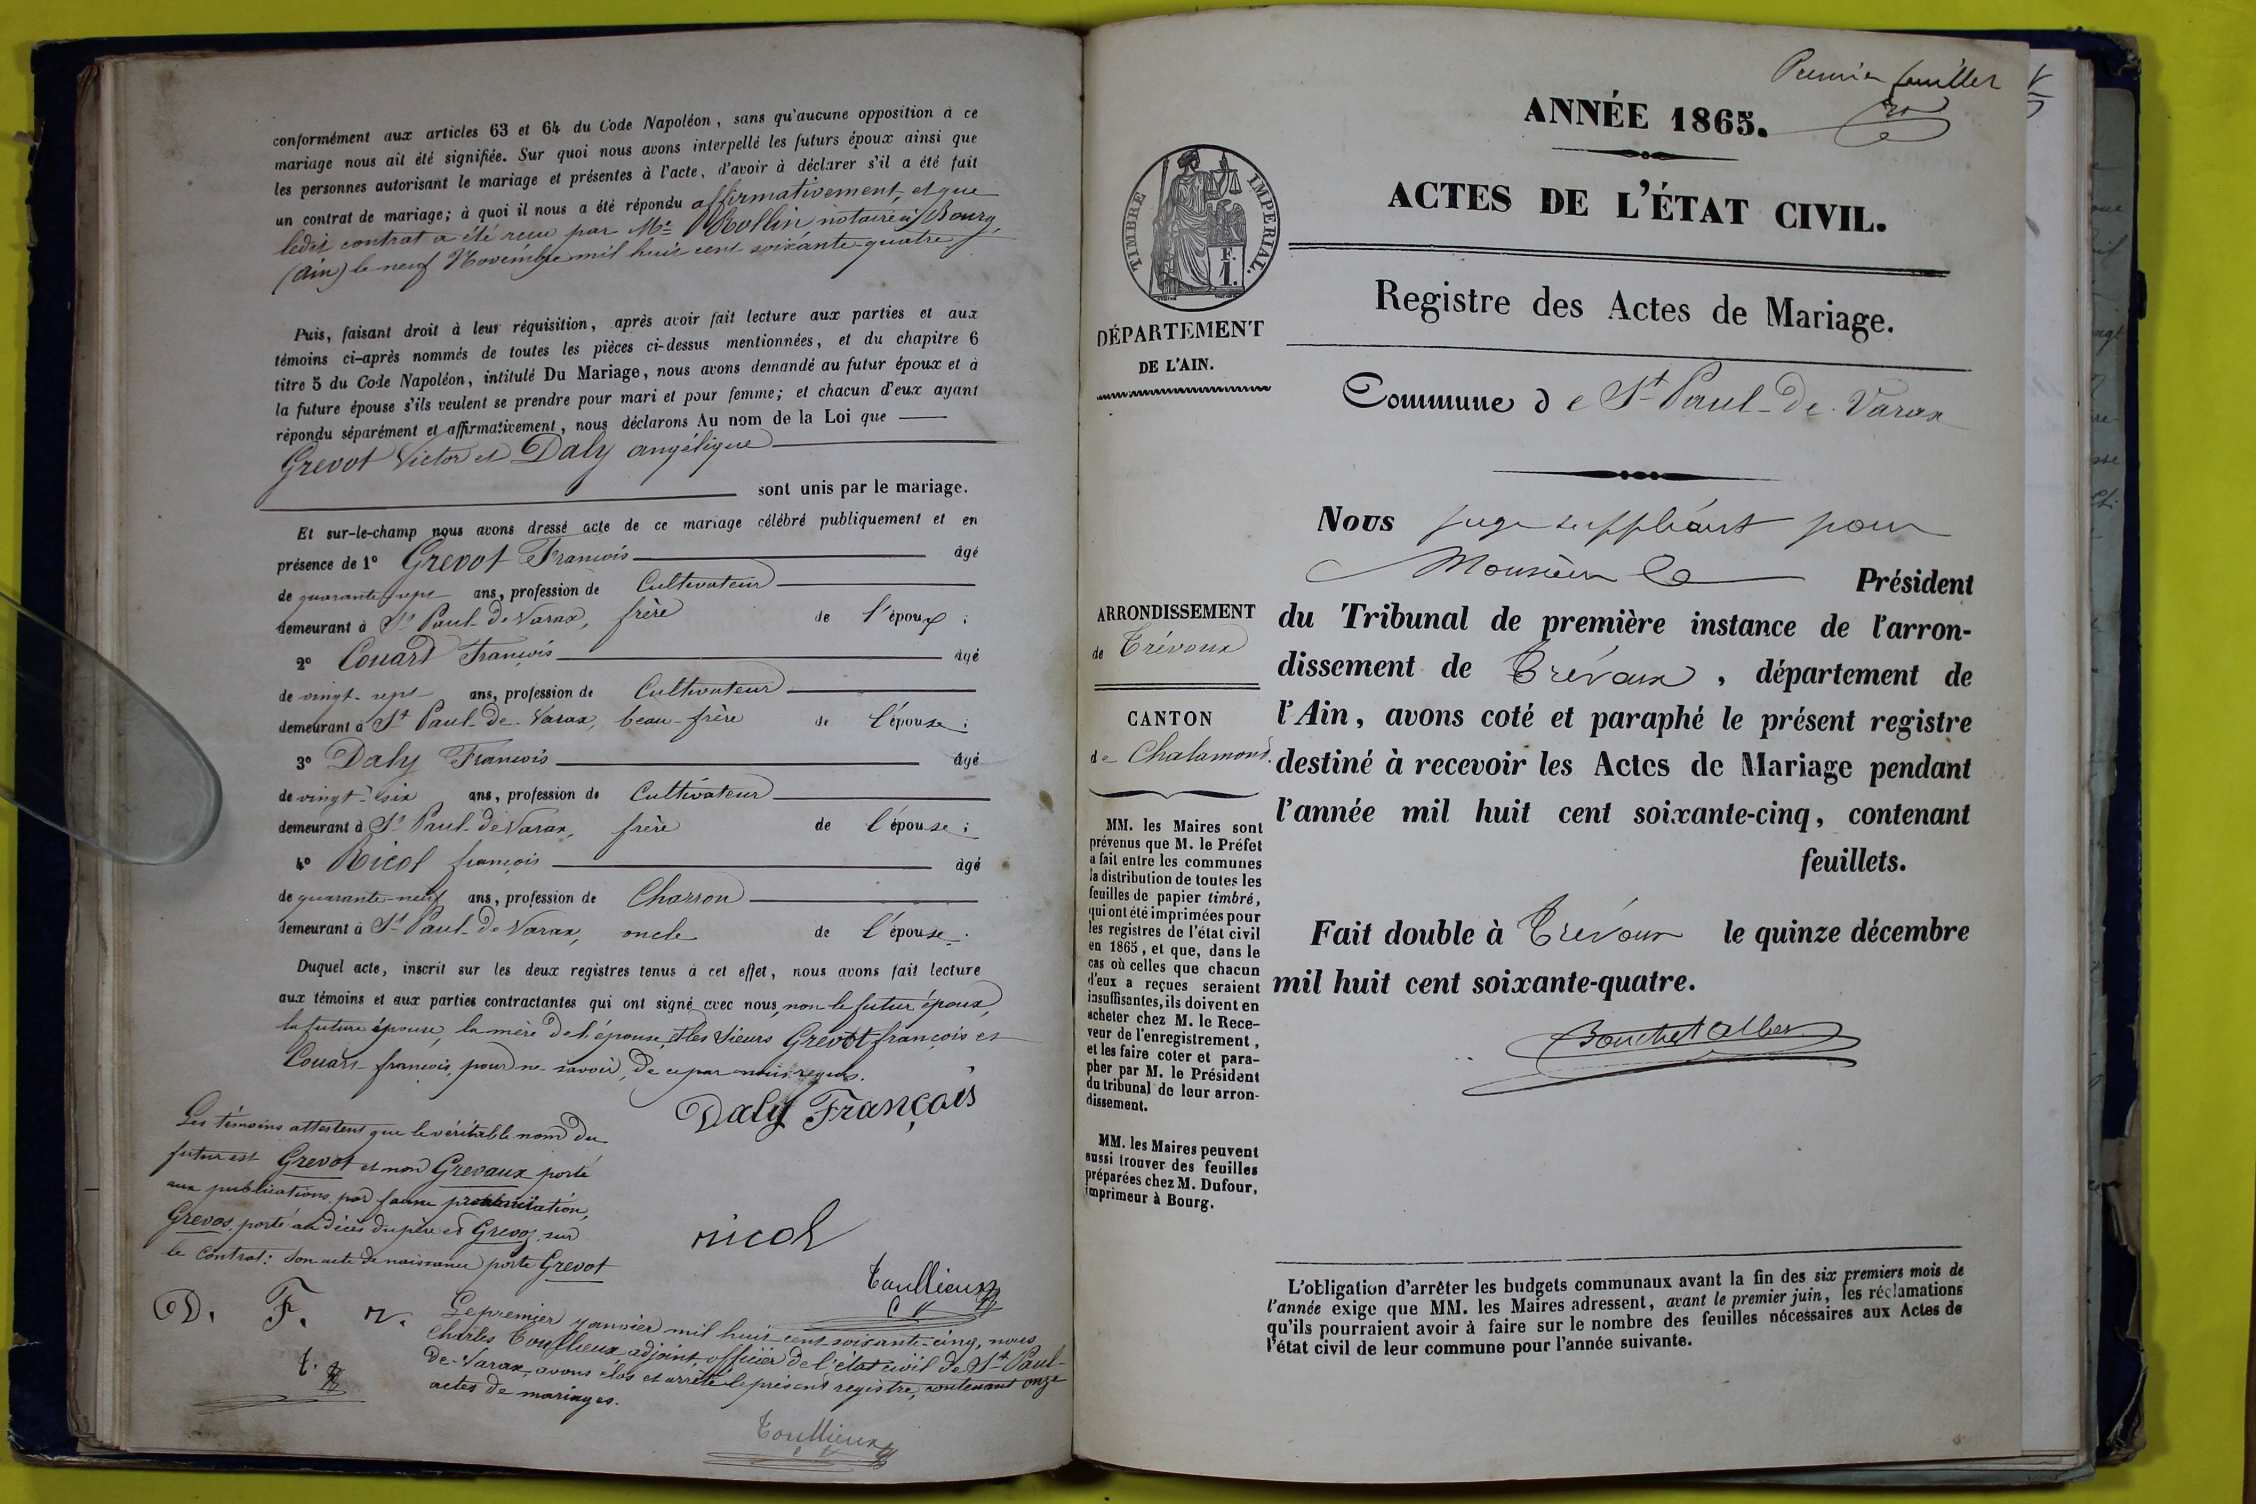 conformément aux articles 63 et 64 du Code Napoléon, sans qu'aucune opposition à ce
mariage nous ait été signifiée. Sur quoi nous avons interpellé les futurs époux ainsi que
les personnes autorisant le mariage et présentes à l'acte, d'avoir à déclarer s'il a été fait
un contrat de mariage; à quoi il nous a été répondu affirmativement, et que
ledit contrat a été reçu par Me Rollin notaire à Bourg,
(ain) le neuf Novembre mil huit cent soixante-quatre
Puis, faisant droit à leur réquisition, après avoir fait lecture aux parties et aux
témoins ci-après nommés de toutes les pièces ci-dessus mentionnées, et du chapitre 6
titre 5 du Code Napoléon, intitulé Du Mariage, nous avons demandé au futur époux et à
la future épouse s'ils veulent se prendre pour mari et pour femme; et chacun d'eux ayant
répondu séparément et affirmativement, nous déclarons Au nom de la Loi que
Grevot Victor et Daly angélique
sont unis par le mariage.
Et sur-le-champ nous avons dressé acte de ce mariage célébré publiquement et en
présence de 1° Grevot François âgé
de quarante-sept ans, profession de Cultivateur
demeurant à St Paul-de-Varax, frère de l'époux;
2° Couard François âgé
de vingt-sept ans, profession de Cultivateur
demeurant à St Paul-de-Varax, beau-frère de l'épouse;
3° Daly François âgé
de vingt-six ans, profession de Cultivateur
demeurant à St Paul-de-Varax, frère de l'épouse;
4° Nicol françois âgé
de quarante-neuf ans, profession de Charron
demeurant à St Paul-de-Varax, oncle de l'épouse.
Duquel acte, inscrit sur les deux registres tenus à cet effet, nous avons fait lecture
aux témoins et aux parties contractantes qui ont signé avec nous, non le futur époux,
la future épouse, la mère de l'épouse, et les sieurs Grevot françois et
Couard françois, pour ne savoir, de ce par nous requis.
Daly François
Les témoins attestent que le véritable nom du
futur est Grevot et non Grevaux porté
aux publications par fausse prononciation,
Grevos, porté au décès du père et Grevoz sur
le Contrat: son acte de naissance porte Grevot
nicol
Toullieux
D. F. n.
t.
Le premier janvier mil huit cent soixante-cinq, nous
Charles Toullieux adjoint, officier de l'état civil de St Paul-
de-Varax, avons clos et arrêté le présent registre, contenant onze
actes de mariages.
Toullieux
Premier feuillet
ANNÉE 1865.
ACTES DE L'ÉTAT CIVIL.
TIMBRE IMPÉRIAL.
F.
1.
Registre des Actes de Mariage.
DÉPARTEMENT
DE L'AIN.
Commune de St Paul-de-Varax
Nous juge suppléant pour
Monsieur le Président
du Tribunal de première instance de l'arron-
dissement de Trévoux, département de
l'Ain, avons coté et paraphé le présent registre
destiné à recevoir les Actes de Mariage pendant
l'année mil huit cent soixante-cinq, contenant
feuillets.
Fait double à Trévoux le quinze décembre
mil huit cent soixante-quatre.
ARRONDISSEMENT
de Trévoux
CANTON
de Chalamont.
MM. les Maires sont
prévenus que M. le Préfet
a fait entre les communes
la distribution de toutes les
feuilles de papier timbré,
qui ont été imprimées pour
les registres de l'état civil
en 1865, et que, dans le
cas où celles que chacun
d'eux a reçues seraient
insuffisantes, ils doivent en
acheter chez M. le Rece-
veur de l'enregistrement,
et les faire coter et para-
pher par M. le Président
du tribunal de leur arron-
dissement.
MM. les Maires peuvent
aussi trouver des feuilles
préparées chez M. Dufour,
imprimeur à Bourg.
L'obligation d'arrêter les budgets communaux avant la fin des six premiers mois de
l'année exige que MM. les Maires adressent, avant le premier juin, les réclamations
qu'ils pourraient avoir à faire sur le nombre des feuilles nécessaires aux Actes de
l'état civil de leur commune pour l'année suivante.